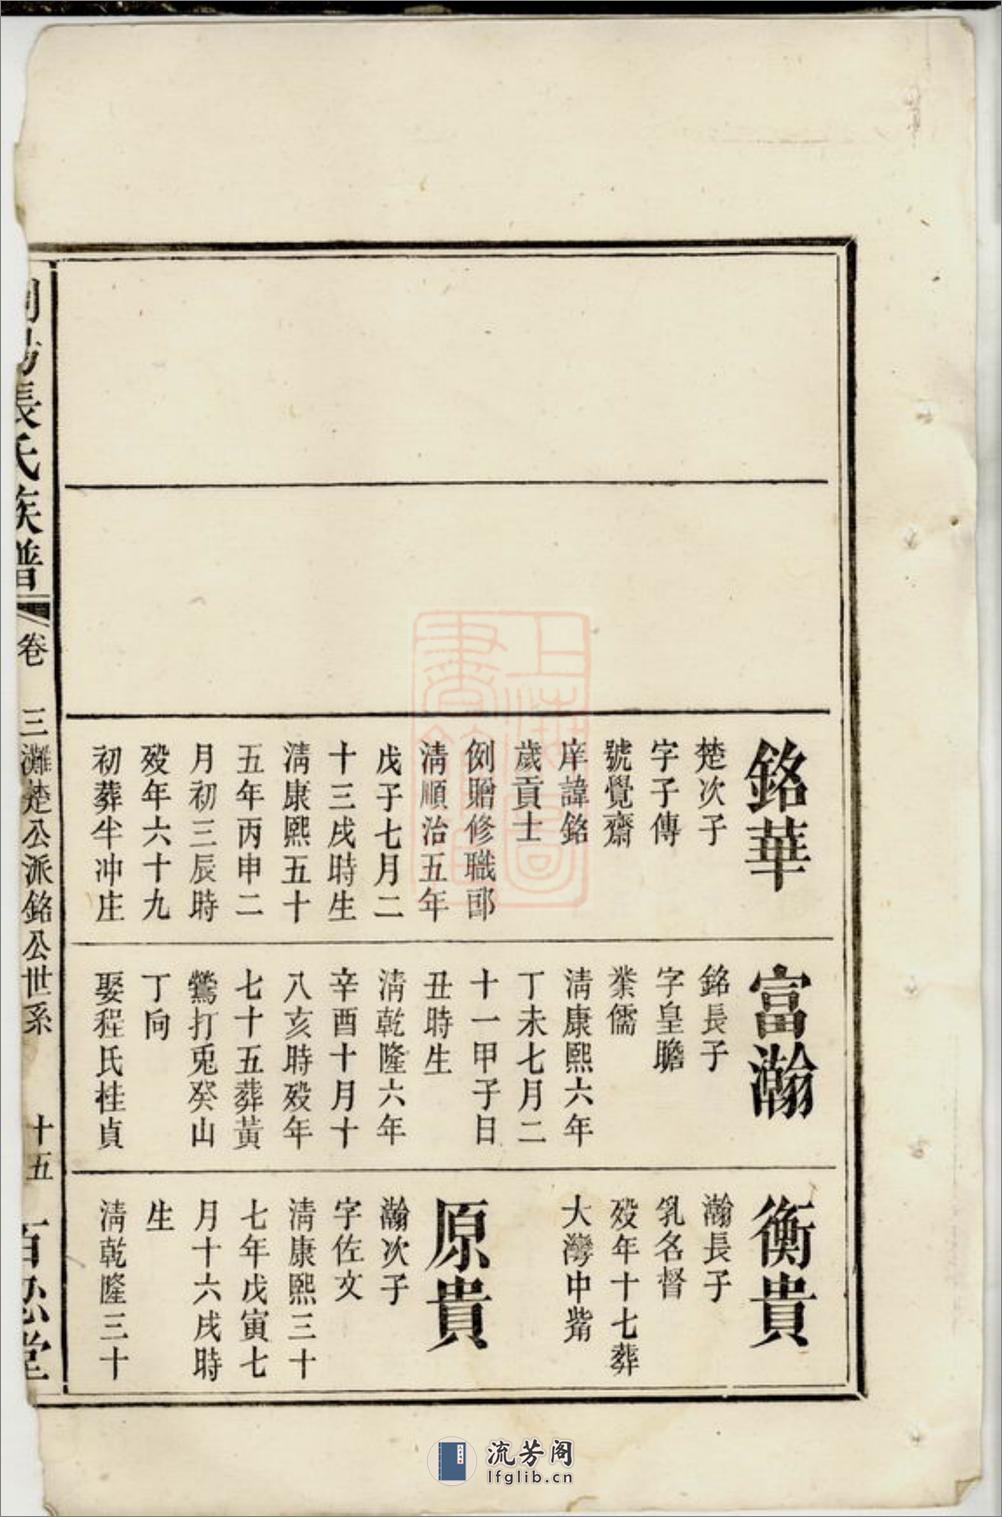 銘華
楚次子
字子傳
號覺齋
庠諱銘
歲貢士
例贈修職郎
淸順治五年
戊子七月二
十三戌時生
淸康熙五十
五年丙申二
月初三辰時
歿年六十九
初葬半冲庄
富瀚
銘長子
字皇瞻
業儒
淸康熙六年
丁未七月二
十一甲子日
丑時生
淸乾隆六年
辛酉十月十
八亥時歿年
七十五葬黃
鶯打兎癸山
丁向
娶程氏桂貞
衡貴
瀚長子
乳名督
歿年十七葬
大灣中嘴
原貴
瀚次子
字佐文
淸康熙三十
七年戊寅七
月十六戌時
生
淸乾隆三十
陽張氏族譜
卷
三灘楚公派銘公世系
十五
百忍堂
上海圖書館藏
流芳阁
lfglib.cn